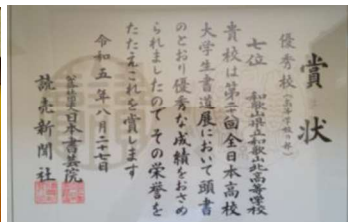 賞状
優秀校(高等学校の部)
七位 和歌山県立和歌山北高等学校
貴校は第二十回全日本高校
大学生書道展において頭書
のとおり優秀な成績をおさめ
られましたのでその栄誉を
たたえこれを賞します
令和五年八月二十七日
日本書芸院
読売新聞社